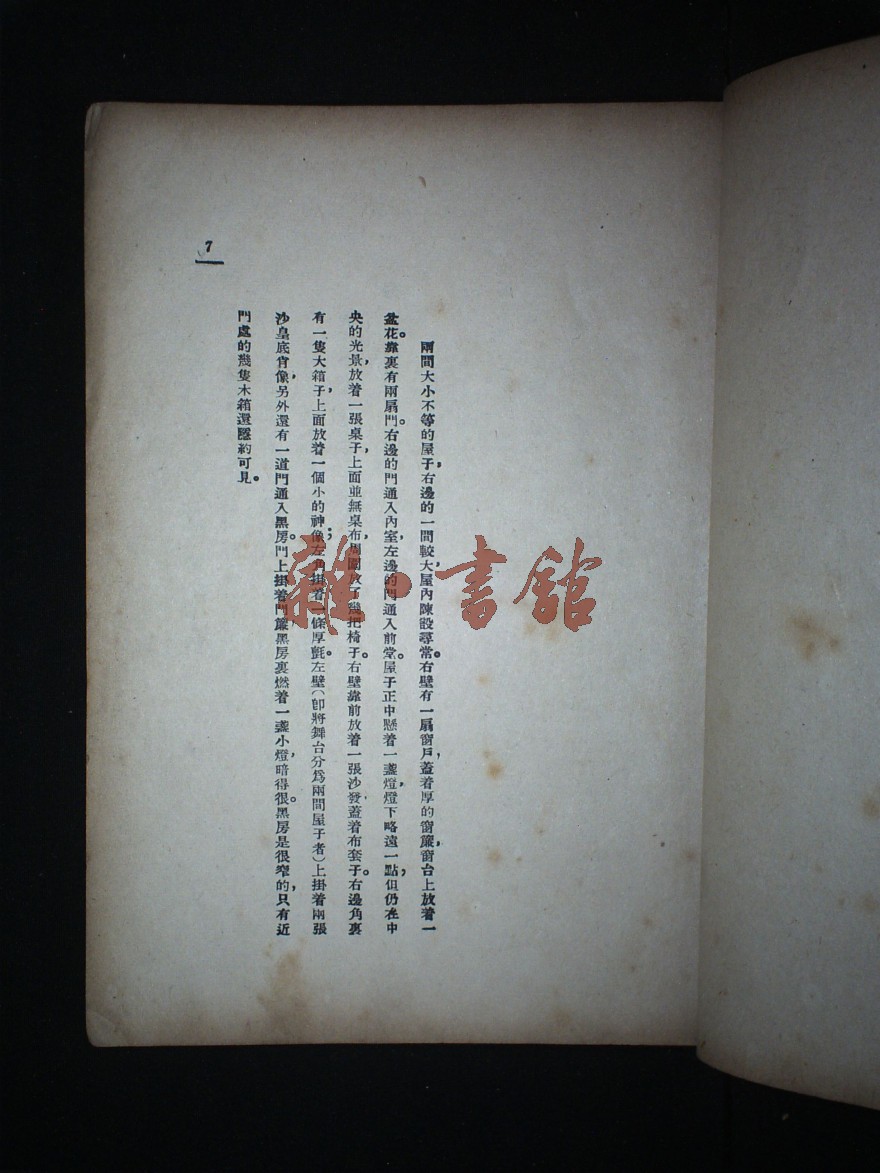 7
兩間大小不等的屋子，右邊的一間較大，屋內陳設尋常。右壁有一扇窗戶，蓋着厚的窗簾，窗台上放着一
盆花。靠裏有兩扇門。右邊的門通入內室，左邊的門通入前堂。屋子正中懸着一盞燈，燈下略遠一點，但仍在中
央的光景，放着一張桌子，上面並無桌布，周圍放了幾把椅子。右壁靠前放着一張沙發，蓋着布套子。右邊角裏
有一隻大箱子，上面放着一個小的神像；左角掛着一條厚氈。左壁（卽將舞台分爲兩間屋子者）上掛着兩張
沙皇底肯像，另外還有一道門通入黑房。門上掛着門簾，黑房裏燃着一盞小燈，暗得很。黑房是很窄的，只有近
門處的幾隻木箱還隱約可見。
雜·書館